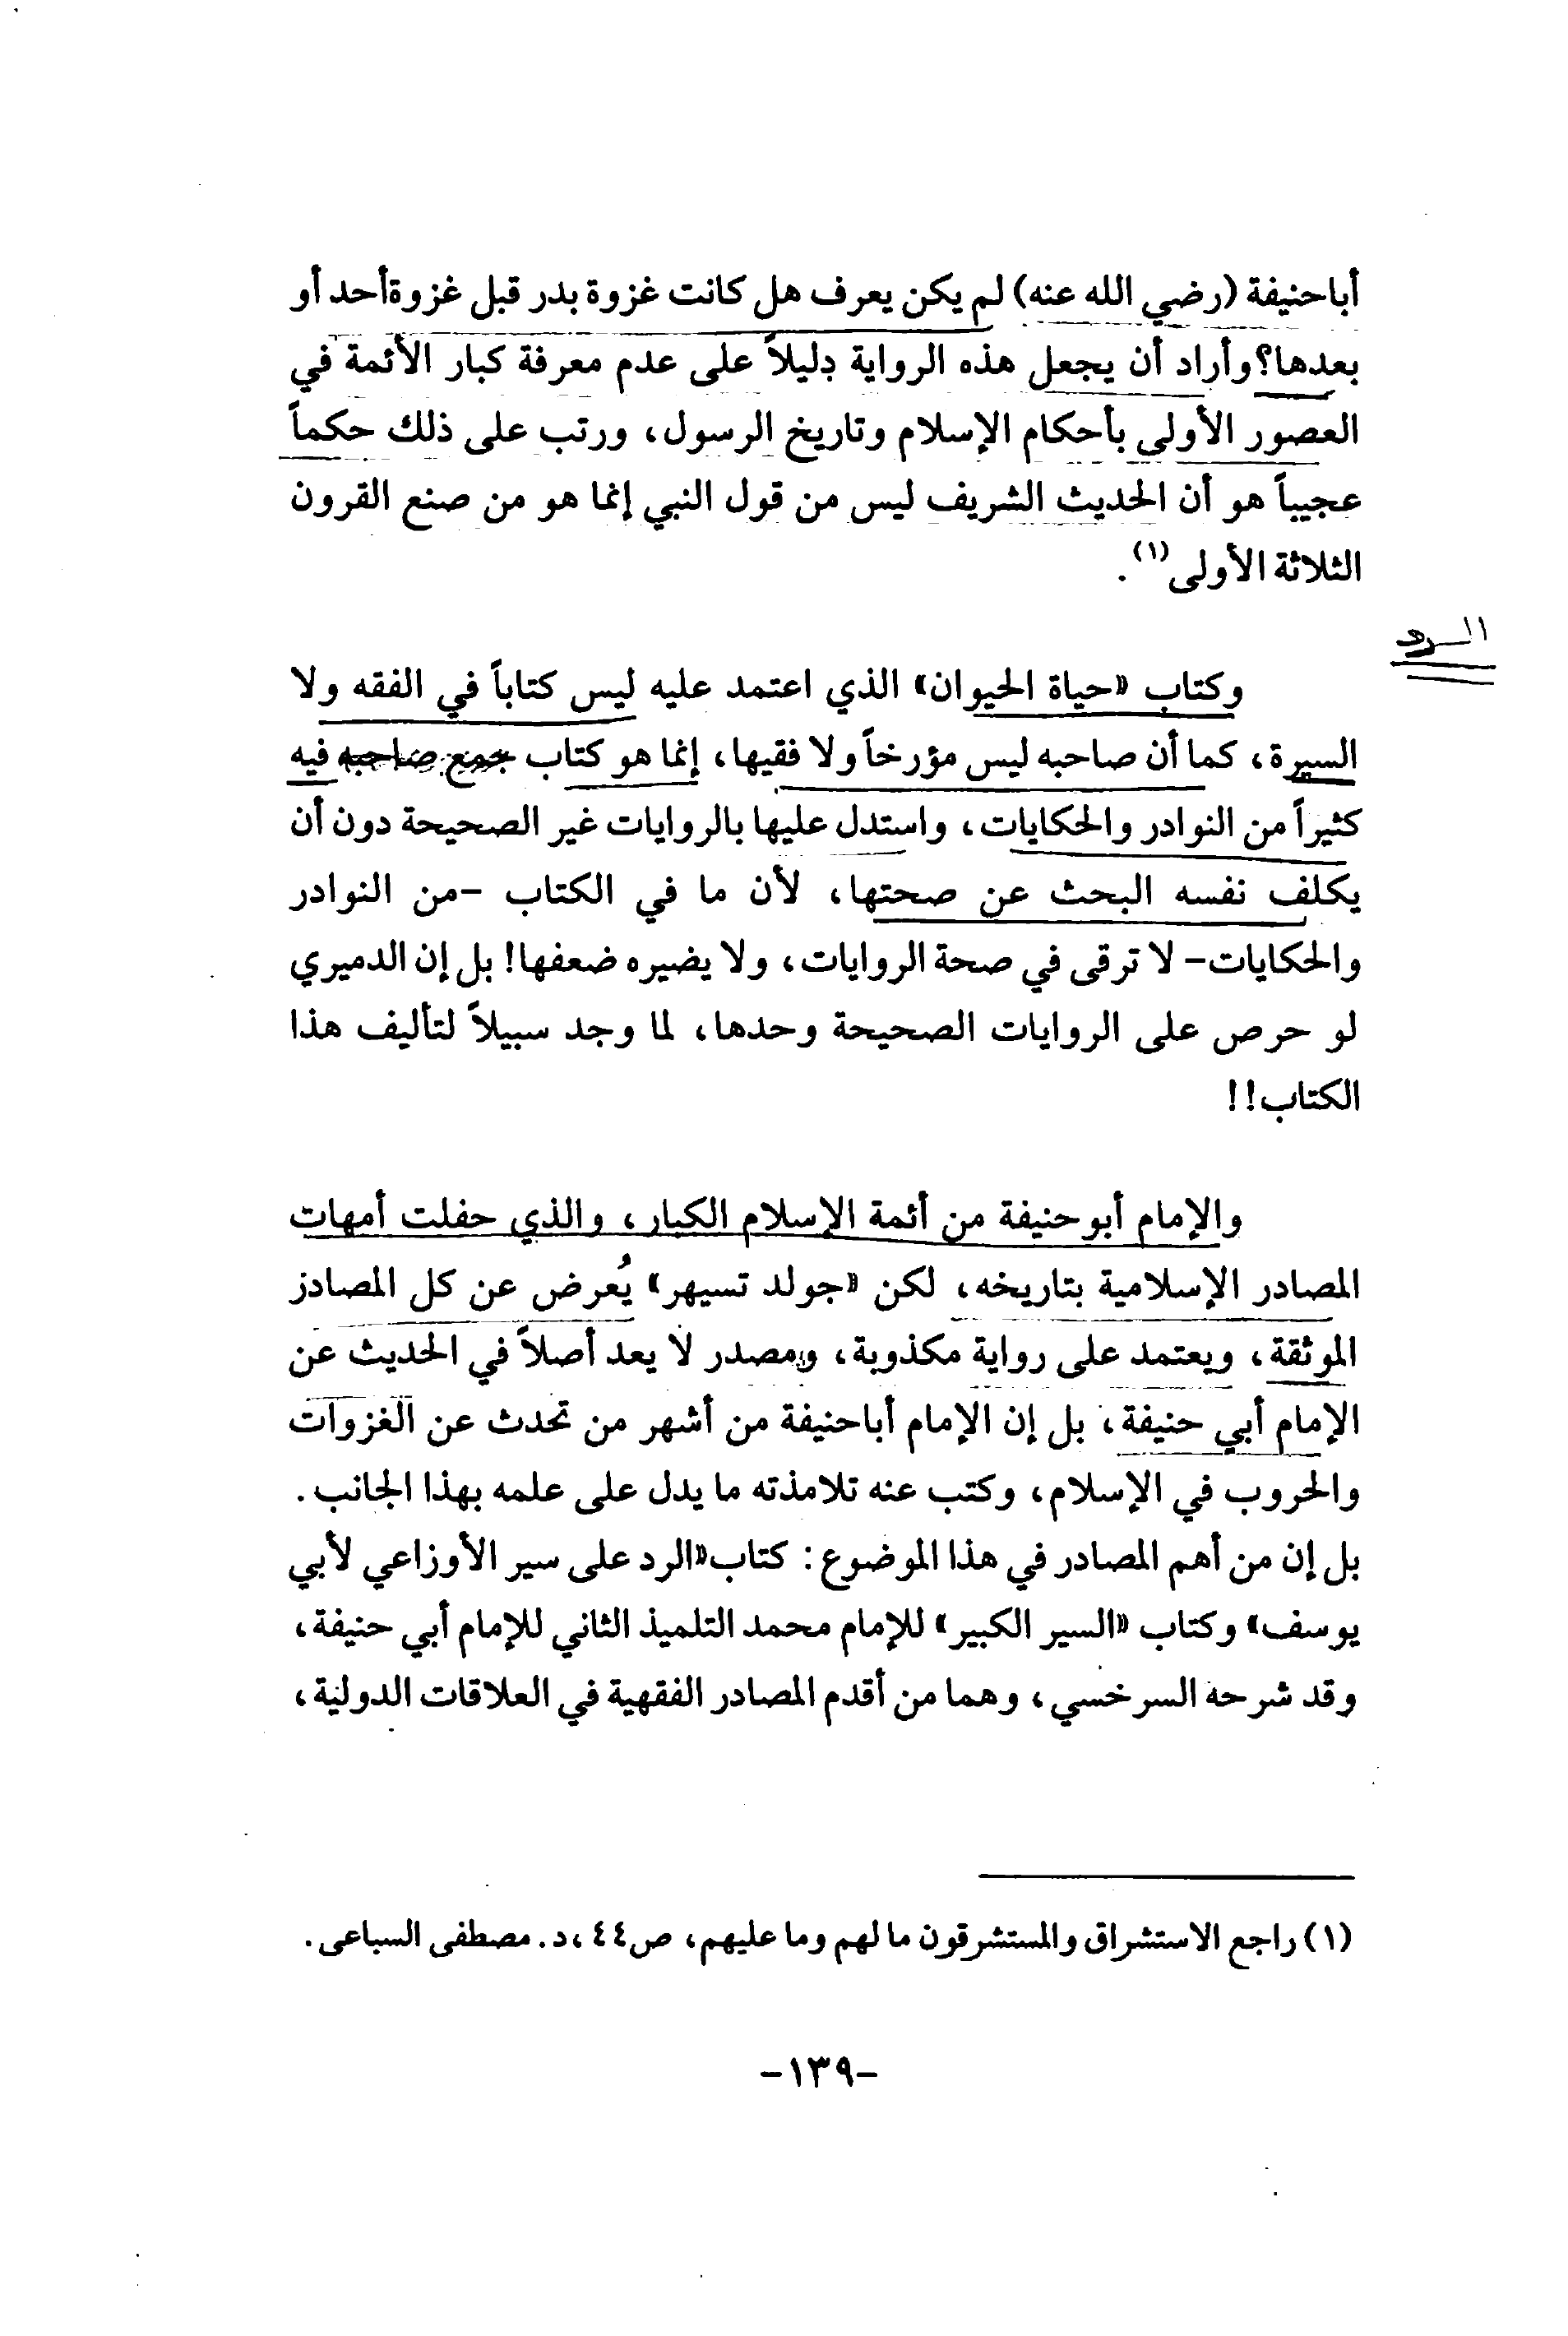 أباحنيفة (رضي الله عنه) لم يكن يعرف هل كانت غزوة بدر قبل غزوةأحد أو
بعدها؟وأراد أن يجعل هذه الرواية دليلاً على عدم معرفة كبار الأئمة في
العصور الأولى بأحكام الإسلام وتاريخ الرسول، ورتب على ذلك حكماً
عجيباً هو أن الحديث الشريف ليس من قول النبي إنما هو من صنع القرون
الثلاثة الأولى(١).
الرد
وكتاب «حياة الحيوان» الذي اعتمد عليه ليس كتاباً في الفقه ولا
السيرة، كما أن صاحبه ليس مؤرخاً ولا فقيها، إنما هو كتاب جمع صاحبه فيه
كثيراً من النوادر والحكايات، واستدل عليها بالروايات غير الصحيحة دون أن
يكلف نفسه البحث عن صحتها، لأن ما في الكتاب -من النوادر
والحكايات- لا ترقى في صحة الروايات، ولا يضيره ضعفها! بل إن الدميري
لو حرص على الروايات الصحيحة وحدها، لما وجد سبيلاً لتأليف هذا
الكتاب!!
والإمام أبوحنيفة من أئمة الإسلام الكبار، والذي حفلت أمهات
المصادر الإسلامية بتاريخه، لكن «جولد تسيهر» يُعرض عن كل المصادر
الموثقة، ويعتمد على رواية مكذوبة، ومصدر لا يعد أصلاً في الحديث عن
الإمام أبي حنيفة، بل إن الإمام أباحنيفة من أشهر من تحدث عن الغزوات
والحروب في الإسلام، وكتب عنه تلامذته ما يدل على علمه بهذا الجانب.
بل إن من أهم المصادر في هذا الموضوع: كتاب«الرد على سير الأوزاعي لأبي
يوسف» وكتاب «السير الكبير» للإمام محمد التلميذ الثاني للإمام أبي حنيفة،
وقد شرحه السرخسي، وهما من أقدم المصادر الفقهية في العلاقات الدولية،
(١) راجع الاستشراق والمستشرقون ما لهم وما عليهم، ص٤٤،د. مصطفى السباعى.
-١٣٩-